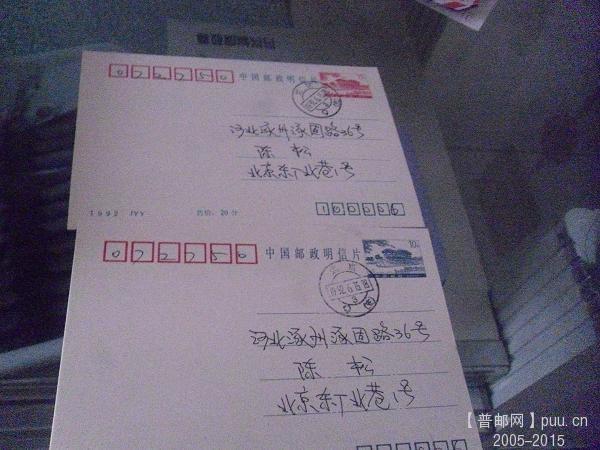 072750
中国邮政明信片
河北涿州涿固路36号
陈 松
北京东丁北巷1号
1992 JYY 售价:20分
072750
中国邮政明信片
10分
河北涿州涿固路36号
陈 松
北京东丁北巷1号
【普邮网】puu.cn
2005-2015